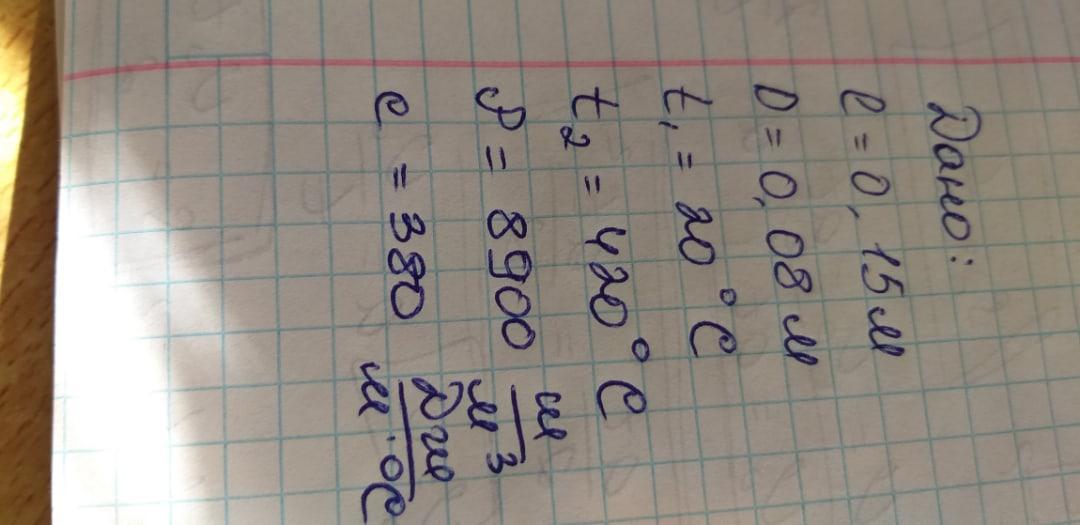 Дано:
l = 0,15 м
D = 0,08 м
t₁ = 20 °C
t₂ = 420 °C
ρ = 8900 кг/м³
c = 380 Дж/кг·°C